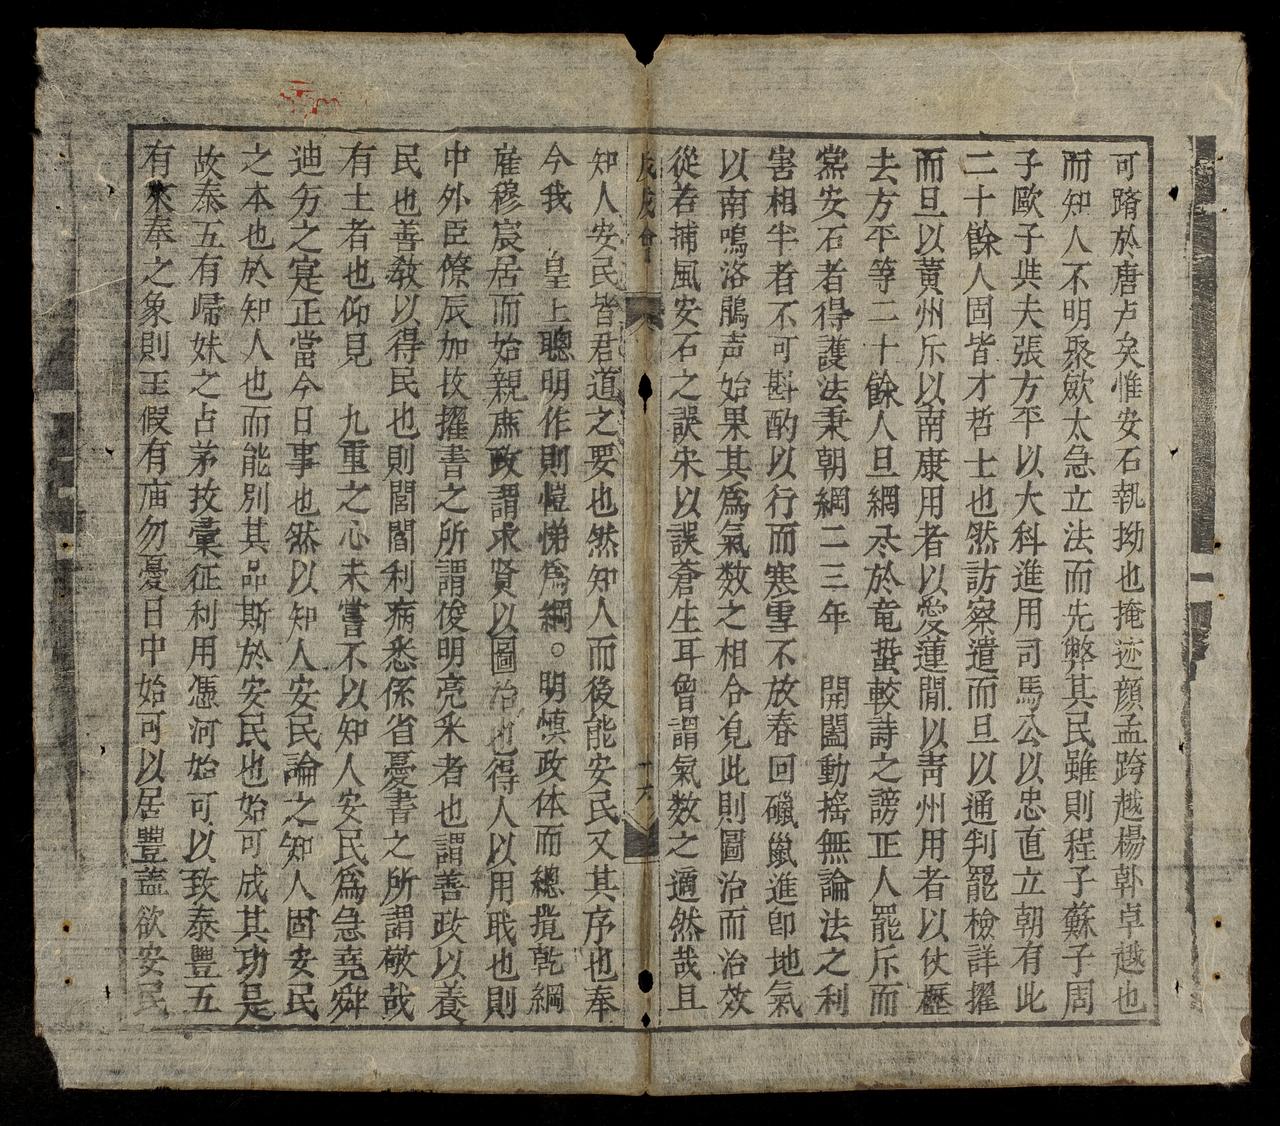 可躋於唐卢矣惟安石執拗也掩迹顔孟跨越楊韩卓越也
而知人不明聚歛太急立法而先弊其民雖則程子蘇子周
子歐子與夫張方平以大科進用司馬公以忠直立朝有此
二十餘人固皆才哲士也然訪察遣而旦以通判罷檢詳擢
而旦以黃州斥以南康用者以愛蓮閒以靑州用者以伏櫪
去方平等二十餘人旦網尽於竜蜇較詩之謗正人罷斥而
黨安石者得護法秉朝綱二三年 開闔動搖無論法之利
害相半者不可斟酌以行而寒雪不放春回礥嵐進卽地氣
以南鳴洛鵑声始果其爲氣数之相合見此則圖治而治效
從若捕風安石之誤宋以誤蒼生耳曾謂氣数之適然哉且
戊戌會
十六
知人安民皆君道之要也然知人而後能安民又其序也奉
今我 皇上聰明作則愷悌爲綱。明愼政体而總攬乾綱
雍穆宸居而始親庶政謂求賢以圖治也得人以用職也則
中外臣僚辰加拔擢書之所謂俊明亮采者也謂善政以養
民也善敎以得民也則閭閻利病悉係省憂書之所謂敬哉
有土者也仰見 九重之心未嘗不以知人安民爲急堯舜
迪芳之寔正當今日事也然以知人安民論之知人固安民
之本也於知人也而能別其品斯於安民也始可成其功是
故泰五有歸妹之占茅拔彙征利用憑河始可以致泰豐五
有來奉之象則王假有庙勿憂日中始可以居豐盖欲安民